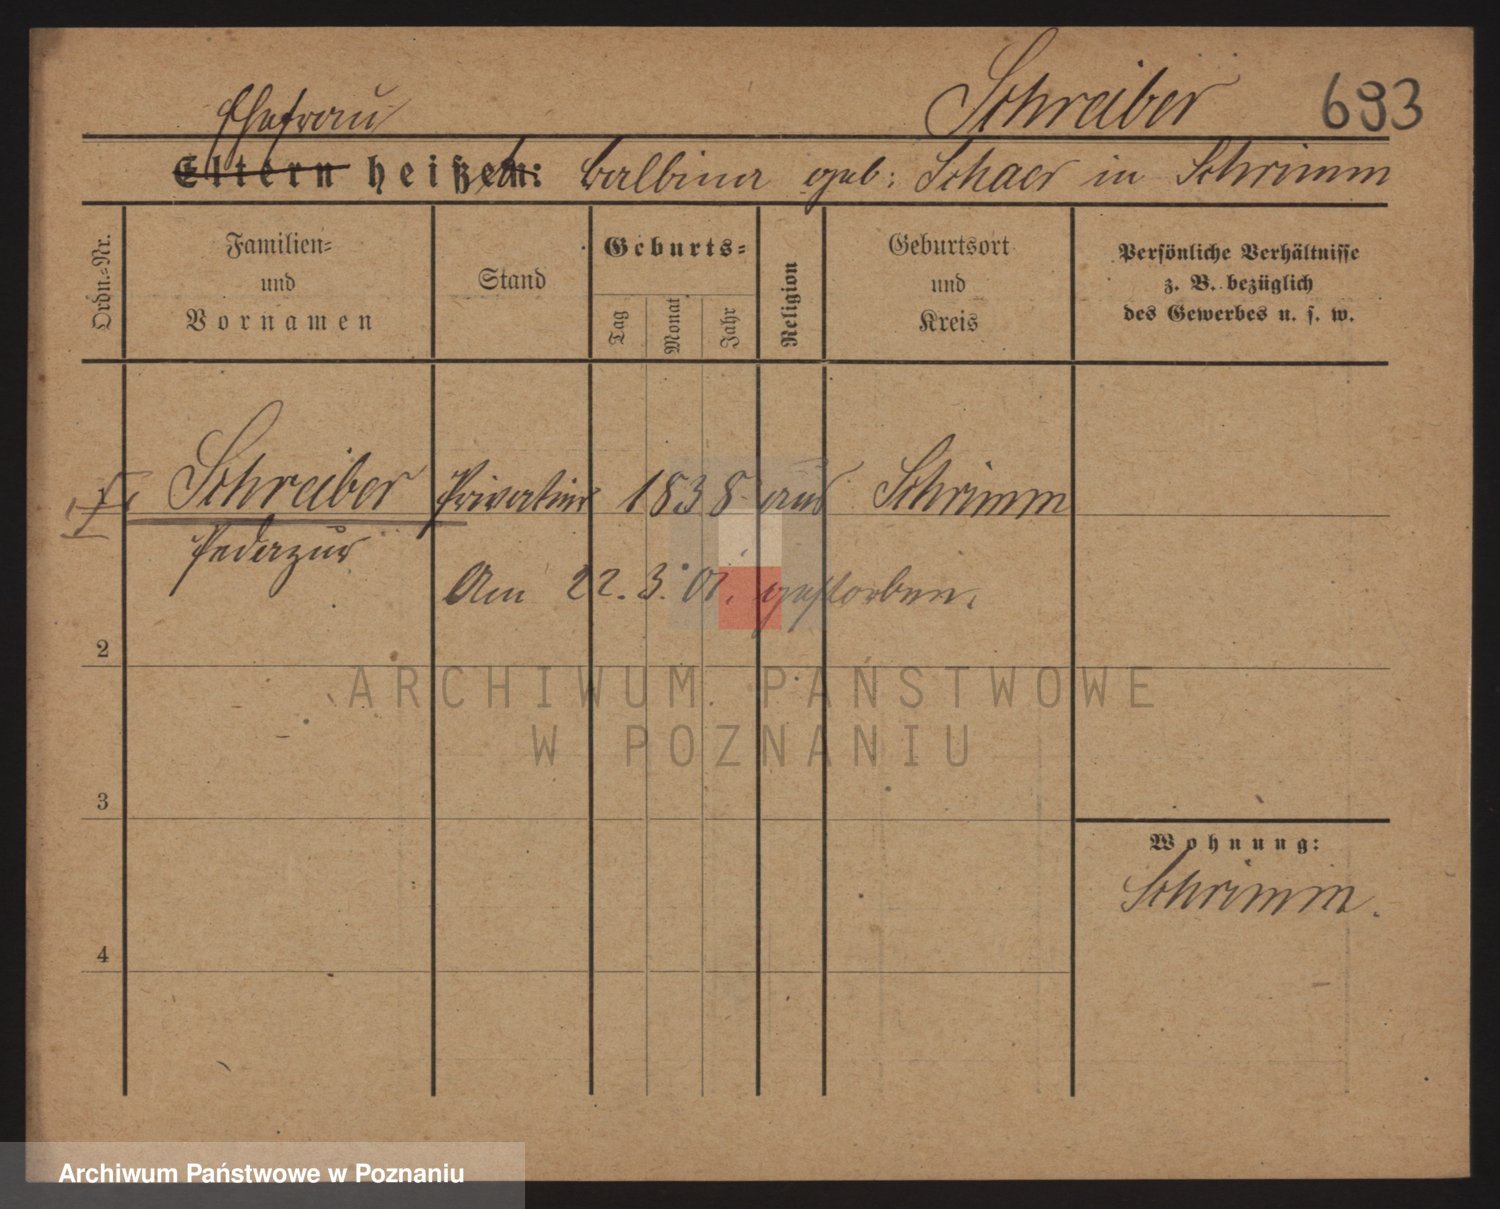 Schreiber 693
Ehefrau
Eltern heißen: Balbina geb: Schaer in Schrimm
Ordn.=Nr.
Familien=
und
Vornamen
Stand
Geburts=
Tag
Monat
Jahr
Religion
Geburtsort
und
Kreis
Persönliche Verhältnisse
z. B. bezüglich
des Gewerbes u. s. w.
Schreiber 1838 aus Schrimm
Pedazur
Am 22. 3. 01. gestorben.
2
3
4
Wohnung:
Schrimm.
ARCHIWUM PAŃSTWOWE
W POZNANIU
Archiwum Państwowe w Poznaniu